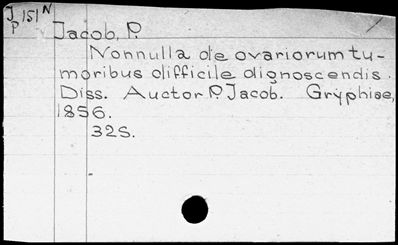 J 151 N
P
Jacob, P.
Nonnulla de ovariorum tu-
moribus difficile dignoscendis.
Diss. Auctor P. Jacob. Gryphiae,
1856.
32S.